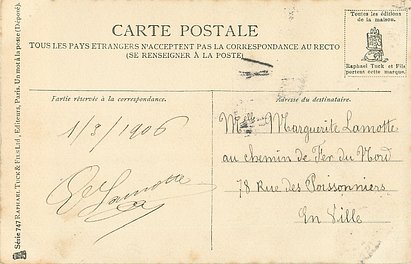 CARTE POSTALE
TOUS LES PAYS ETRANGERS N'ACCEPTENT PAS LA CORRESPONDANCE AU RECTO
(SE RENSEIGNER À LA POSTE)
Toutes les éditions
de la maison.
Raphael Tuck et Fils
portent cette marque.
Partie réservée à la correspondance.
Adresse du destinataire.
1/3/1906
Lamotte
Marguerite Lamotte
au chemin de Fer du Nord
78 Rue des Poissonniers
En Ville
Série 747 RAPHAEL TUCK & FILS Ltd, Editeurs, Paris. Un mot à la poste (Déposé).